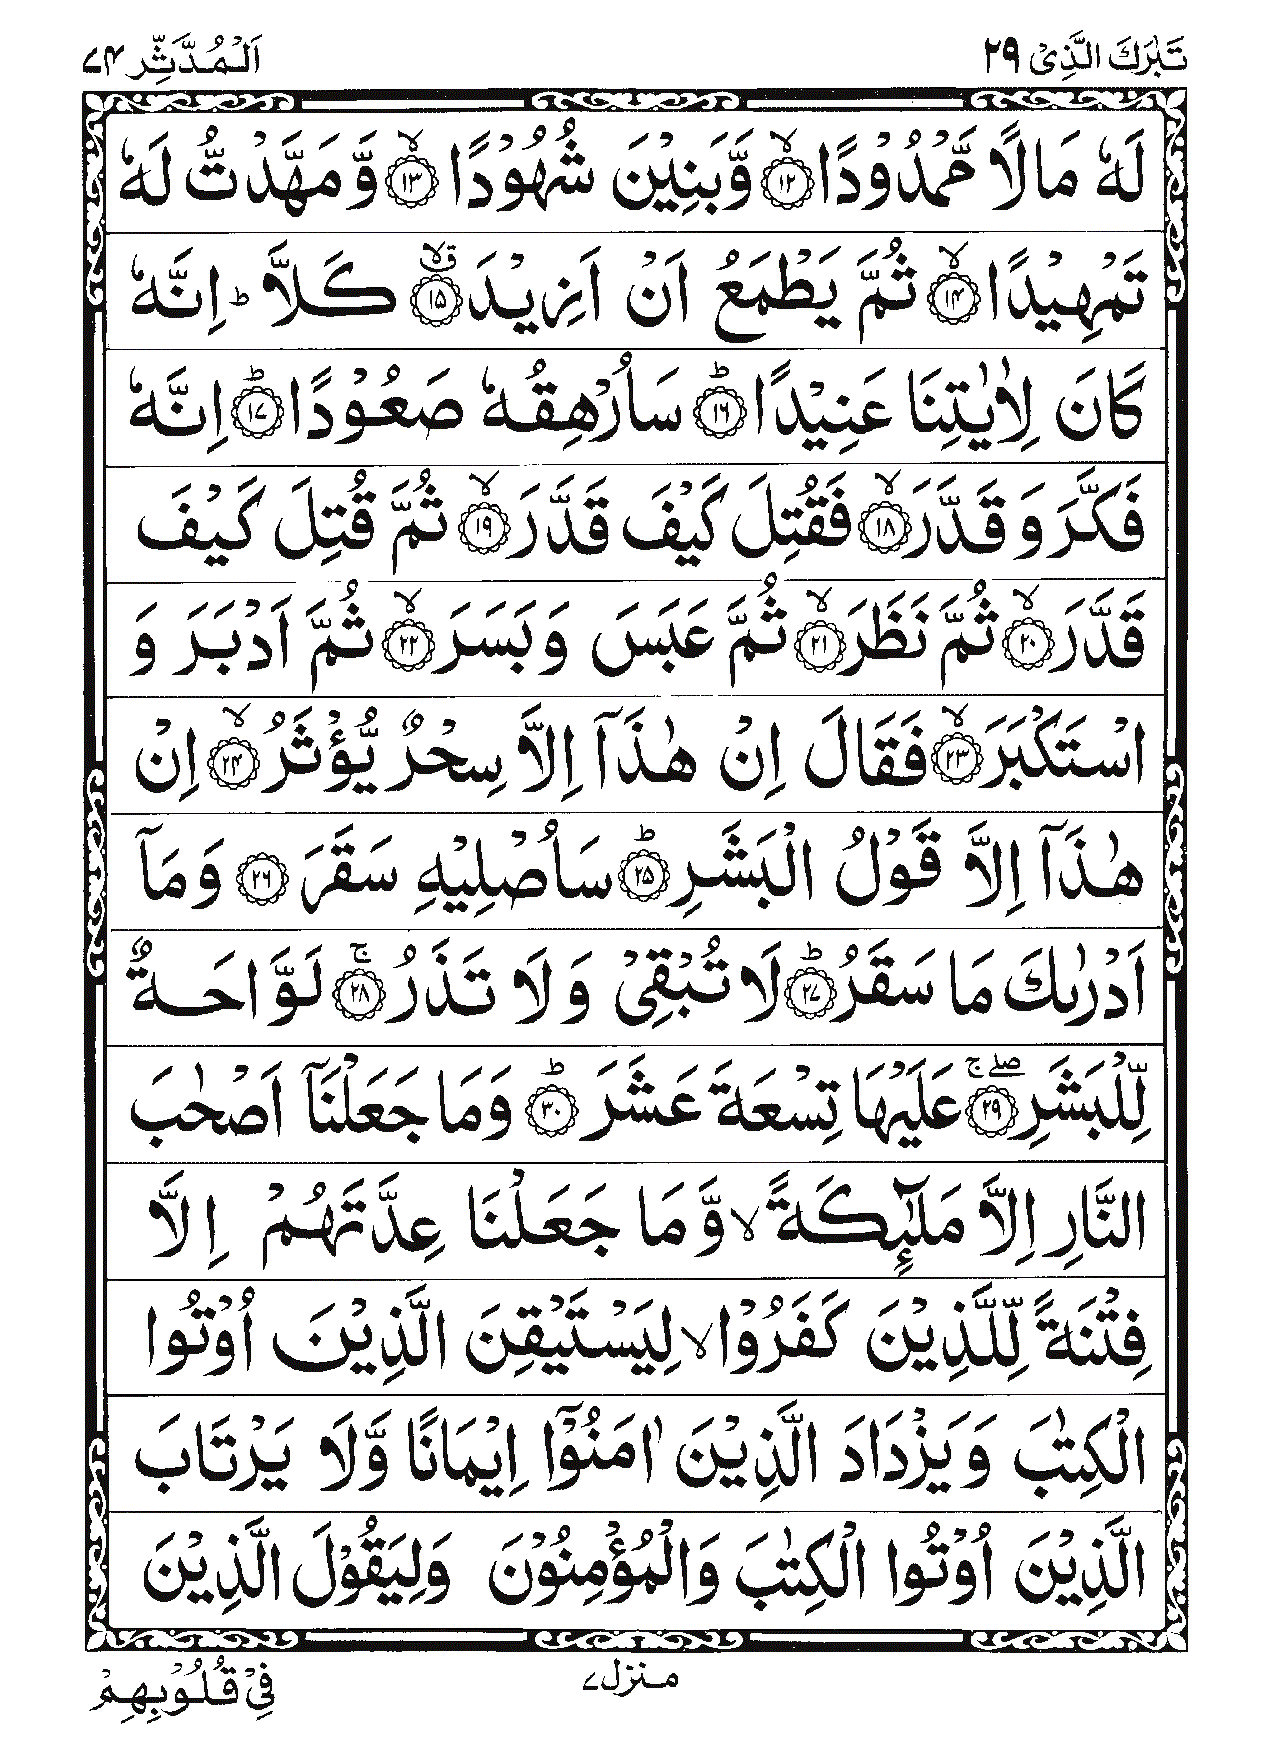 تَبٰرَكَ الَّذِیْ ۲۹
اَلْمُدَّثِّر ۷۴
لَهٗ مَالًا مَّمْدُوْدًا ۙ﴿۱۲﴾ وَّبَنِیْنَ شُهُوْدًا ۙ﴿۱۳﴾ وَّ مَهَّدْتُّ لَهٗ
تَمْهِیْدًا ۙ﴿۱۴﴾ ثُمَّ یَطْمَعُ اَنْ اَزِیْدَ ۙۗ﴿۱۵﴾ كَلَّا ؕ اِنَّهٗ
كَانَ لِاٰیٰتِنَا عَنِیْدًا ؕ﴿۱۶﴾ سَاُرْهِقُهٗ صَعُوْدًا ؕ﴿۱۷﴾ اِنَّهٗ
فَكَّرَ وَ قَدَّرَ ۙ﴿۱۸﴾ فَقُتِلَ كَیْفَ قَدَّرَ ۙ﴿۱۹﴾ ثُمَّ قُتِلَ كَیْفَ
قَدَّرَ ۙ﴿۲۰﴾ ثُمَّ نَظَرَ ۙ﴿۲۱﴾ ثُمَّ عَبَسَ وَ بَسَرَ ۙ﴿۲۲﴾ ثُمَّ اَدْبَرَ وَ
اسْتَكْبَرَ ۙ﴿۲۳﴾ فَقَالَ اِنْ هٰذَاۤ اِلَّا سِحْرٌ یُّؤْثَرُ ۙ﴿۲۴﴾ اِنْ
هٰذَاۤ اِلَّا قَوْلُ الْبَشَرِ ؕ﴿۲۵﴾ سَاُصْلِیْهِ سَقَرَ ﴿۲۶﴾ وَ مَاۤ
اَدْرٰىكَ مَا سَقَرُ ؕ﴿۲۷﴾ لَا تُبْقِیْ وَ لَا تَذَرُ ۚ﴿۲۸﴾ لَوَّاحَةٌ
لِّلْبَشَرِ ۖۚ﴿۲۹﴾ عَلَیْهَا تِسْعَةَ عَشَرَ ؕ﴿۳۰﴾ وَ مَا جَعَلْنَاۤ اَصْحٰبَ
النَّارِ اِلَّا مَلٰٓئِكَةً ۙ وَّ مَا جَعَلْنَا عِدَّتَهُمْ اِلَّا
فِتْنَةً لِّلَّذِیْنَ كَفَرُوْا ۙ لِیَسْتَیْقِنَ الَّذِیْنَ اُوْتُوا
الْكِتٰبَ وَ یَزْدَادَ الَّذِیْنَ اٰمَنُوْۤا اِیْمَانًا وَّ لَا یَرْتَابَ
الَّذِیْنَ اُوْتُوا الْكِتٰبَ وَ الْمُؤْمِنُوْنَ وَ لِیَقُوْلَ الَّذِیْنَ
منزل ۷
فِیْ قُلُوْبِهِمْ